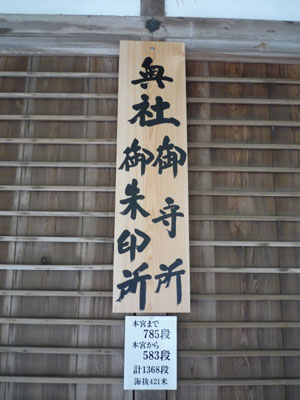 奥社
御守所
御朱印所
本宮まで
785段
本宮から
583段
計1368段
海抜421米